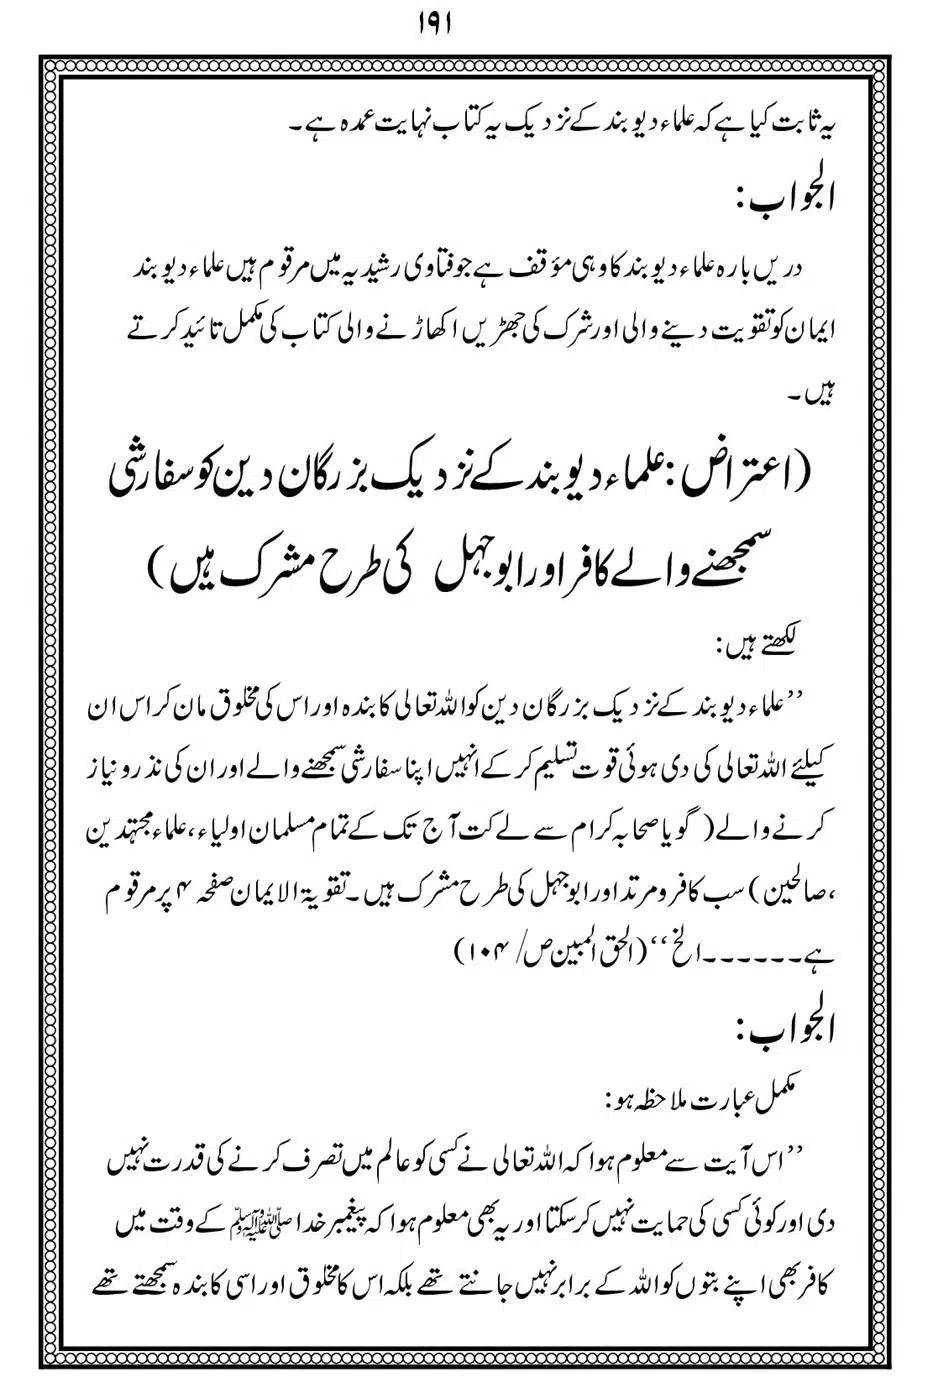 ۱۹۱
یہ ثابت کیا ہے کہ علماء دیوبند کے نزدیک یہ کتاب نہایت عمدہ ہے۔
الجواب:
دریں بارہ علماء دیوبند کا وہی مؤقف ہے جو فتاوی رشیدیہ میں مرقوم ہیں علماء دیوبند
ایمان کو تقویت دینے والی اور شرک کی جھڑیں اکھاڑنے والی کتاب کی مکمل تائید کرتے
ہیں۔
(اعتراض: علماء دیوبند کے نزدیک بزرگان دین کو سفارشی
سمجھنے والے کافر اور ابوجہل کی طرح مشرک ہیں)
لکھتے ہیں:
’’علماء دیوبند کے نزدیک بزرگان دین کو اللہ تعالی کا بندہ اور اس کی مخلوق مان کر اس ان
کیلئے اللہ تعالی کی دی ہوئی قوت تسلیم کر کے انہیں اپنا سفارشی سمجھنے والے اور ان کی نذر و نیاز
کرنے والے (گویا صحابہ کرام سے لے کت آج تک کے تمام مسلمان اولیاء، علماء مجتہدین
،صالحین) سب کافر و مرتد اور ابوجہل کی طرح مشرک ہیں۔ تقویۃ الایمان صفحہ ۴ پر مرقوم
ہے۔۔۔۔۔۔الخ‘‘ (الحق المبین ص/ ۱۰۴)
الجواب:
مکمل عبارت ملاحظہ ہو:
’’اس آیت سے معلوم ہوا کہ اللہ تعالی نے کسی کو عالم میں تصرف کرنے کی قدرت نہیں
دی اور کوئی کسی کی حمایت نہیں کرسکتا اور یہ بھی معلوم ہوا کہ پیغمبر خدا ﷺ کے وقت میں
کافر بھی اپنے بتوں کو اللہ کے برابر نہیں جانتے تھے بلکہ اس کا مخلوق اور اسی کا بندہ سمجھتے تھے